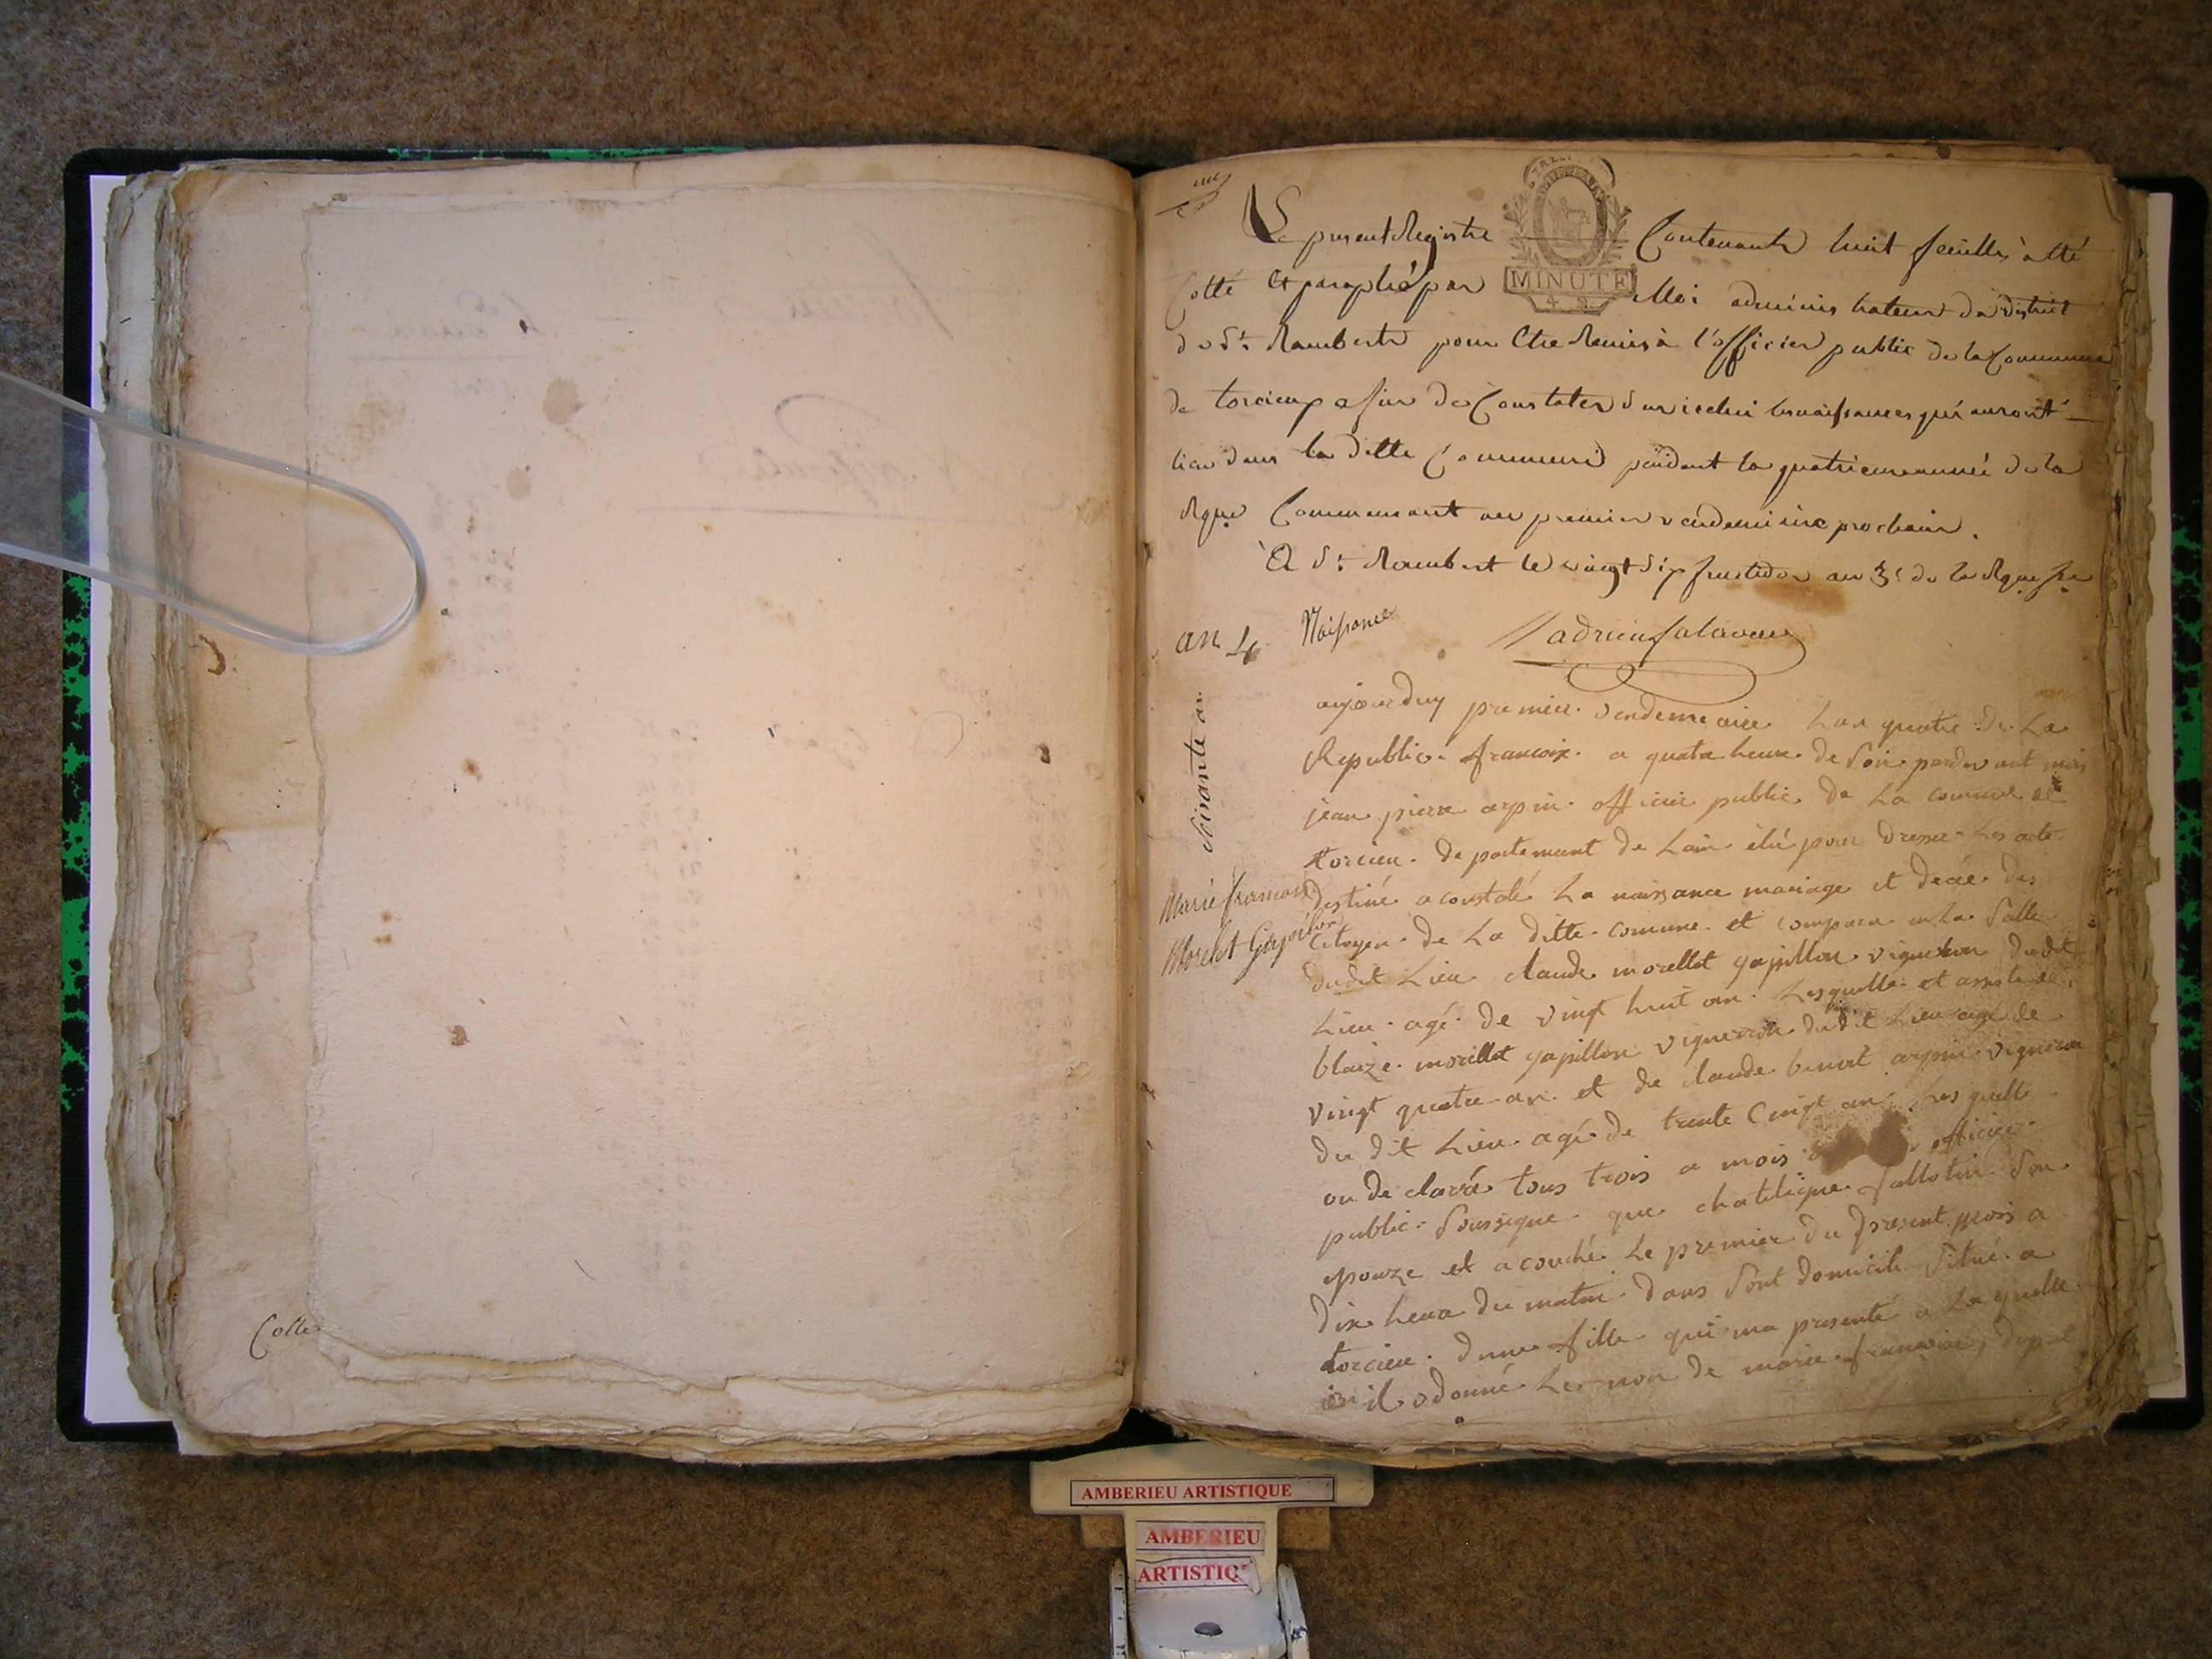 Colle
Le present Registre Contenant huit feuilles à été
MINUTE
Cotté et paraphé par Moi administrateur du district
de St. Rambert pour Etre Remis à l'officier public de la Commune
de torcieux afin de Constater sur icelui les naissances qui auront
lieu dans la ditte Commune pendant la quatrieme année de la
Rque Commensant au premier vendemiaire prochain.
A St. Rambert le vingt six fructidor an 3e de la Rque fse
an 4 Naissance
Soixante
Marie francoise
Morelot Gapillon
aujourduy premier vendemeaire Lan quatre de La
Republic francoixe a quatre heure de Soir pardevant mois
jean pierre arpin officier public de La comune de
torcieu departemant de Lain élié pour dresser Les acte
destiné a constaté La naissance mariage et decée des
Citoyen de La ditte comune et comparu en La Salle
dudit Lieu claude morellot gapillon vigneron dudit
Lieu agé de vingt huit an Lesquelle et assisté de
blaize morellot gapillon vigneron dudit Lieu agé de
vingt quatre an et de claude benoit arpin vigneron
du dit Lieu agé de trente Cinqt an Les quelle
on declaré tous trois a mois officier
public Soussigne que fallotin Son
epouze et acouché Le premier du present mois a
dix heura du matin dans Sont domicile Situé a
torcieu dunne fille qui ma presenté a La quelle
il a donné Le non de marie francoise
AMBERIEU ARTISTIQUE
AMBERIEU
ARTISTIQ